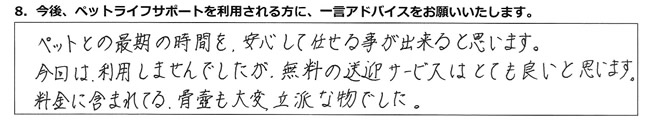 8．今後、ペットライフサポートを利用される方に、一言アドバイスをお願いいたします。
ペットとの最期の時間を、安心して任せる事が出来ると思います。
今回は、利用しませんでしたが、無料の送迎サービスはとても良いと思います。
料金に含まれてる、骨壺も大変、立派な物でした。